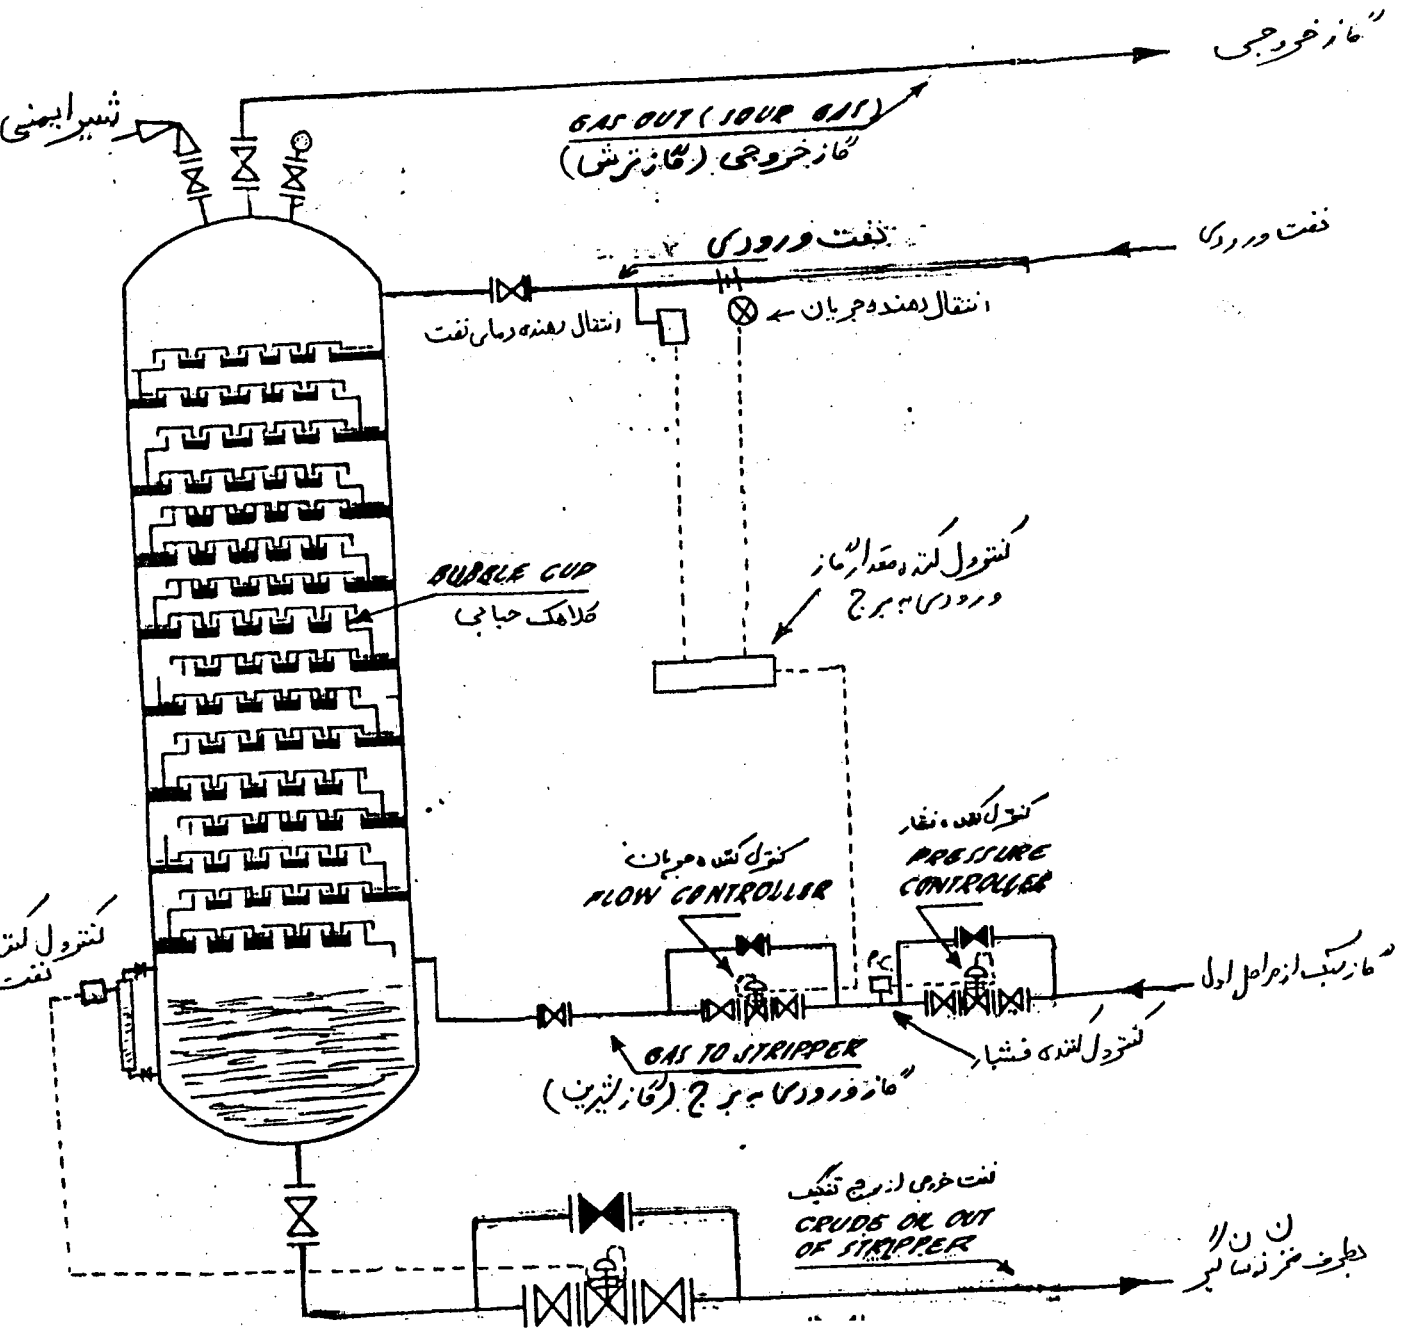 گاز خروجی
شیر ایمنی
GAS OUT (SOUR GAS)
گاز خروجی (گاز ترش)
نفت ورودی
نفت ورودی
انتقال دهنده جریان
انتقال دهنده دمای نفت
کنترول کننده مقدار گاز
ورودی به برج
BUBBLE CUP
کلاهک حبابی
کنترل کننده جریان
FLOW CONTROLLER
کنترل کننده فشار
PRESSURE
CONTROLLER
P.C
گاز سبک از مراحل اول
کنترول کننده‌ی فشار
کنترول
نفت
GAS TO STRIPPER
گاز ورودی به برج (گاز شیرین)
نفت خروجی از برج تفکیک
CRUDE OIL OUT
OF STRIPPER
بطرف مخزن